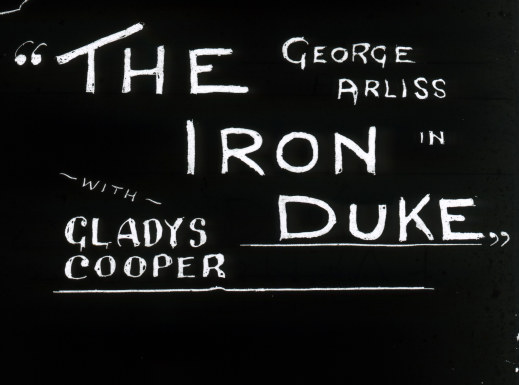 GEORGE
ARLISS
IN
“THE
IRON
DUKE„
~WITH~
GLADYS
COOPER